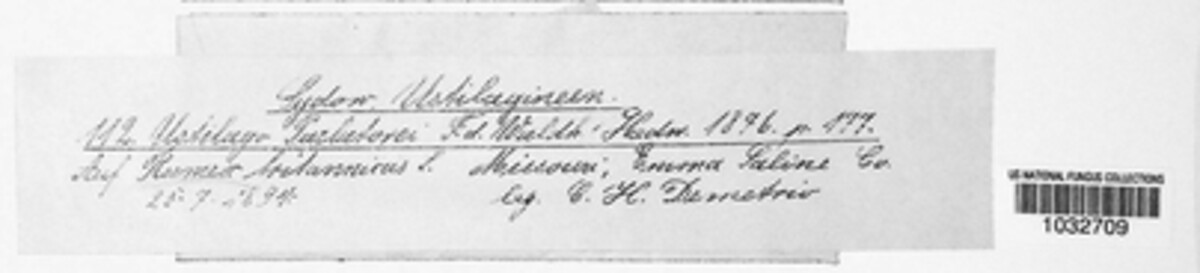 Sydow, Ustilagineen.
112. Ustilago Parlatorei F. d. Waldh. Hedw. 1876. p. 177.
Auf Rumex britannicus L. Missouri, Emma Saline Co.
25. 7. 1894. leg. C. H. Demetrio
US NATIONAL FUNGUS COLLECTIONS
1032709